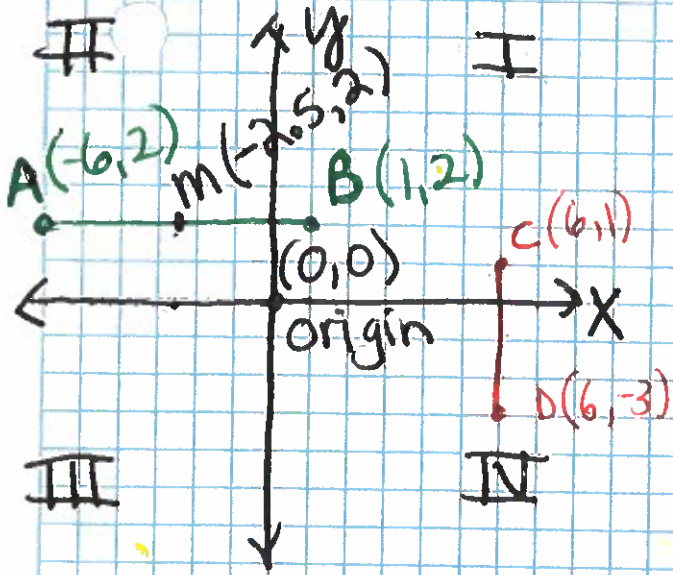 II y I
A(-6,2) m(-2.5,2) B(1,2)
C(6,1)
(0,0)
X
origin
D(6,-3)
III IV